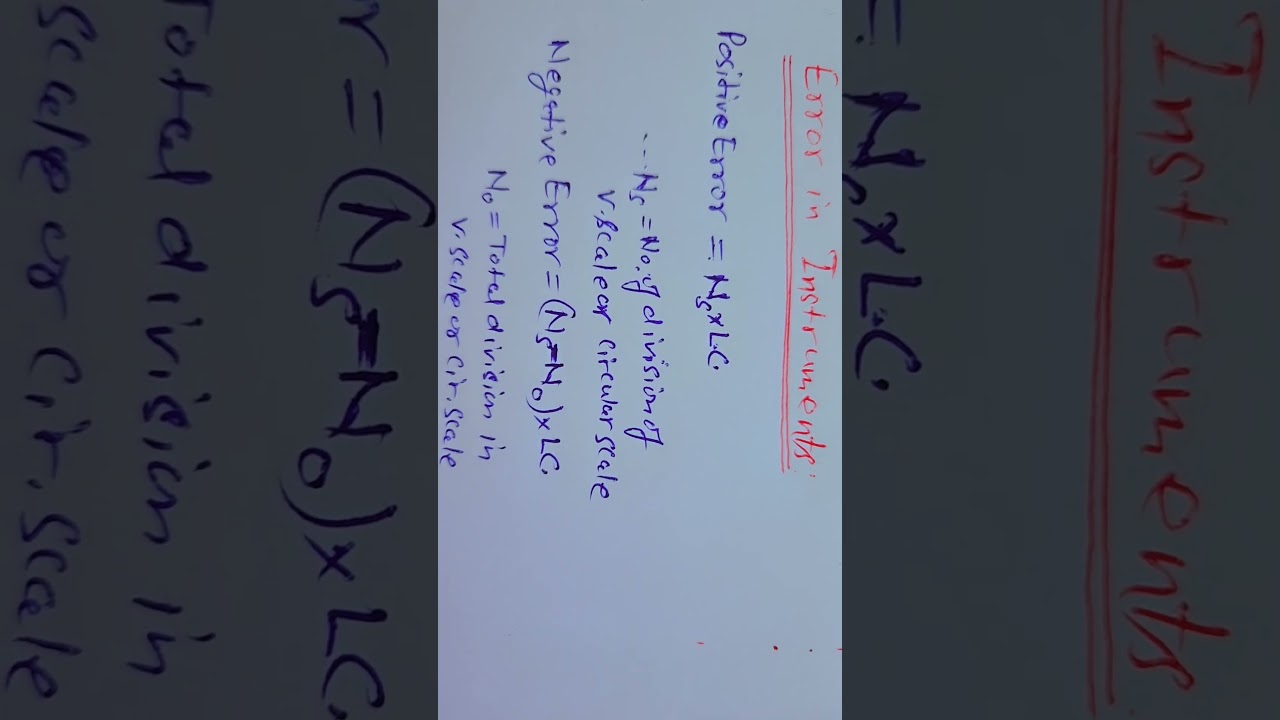 Error in Instruments:
Positive Error = Ns x L.C.
... Ns = No. of division of
V. Scale or circular scale
Negative Error = (Ns - No) x LC.
No = Total division in
V. Scale or Cir. Scale